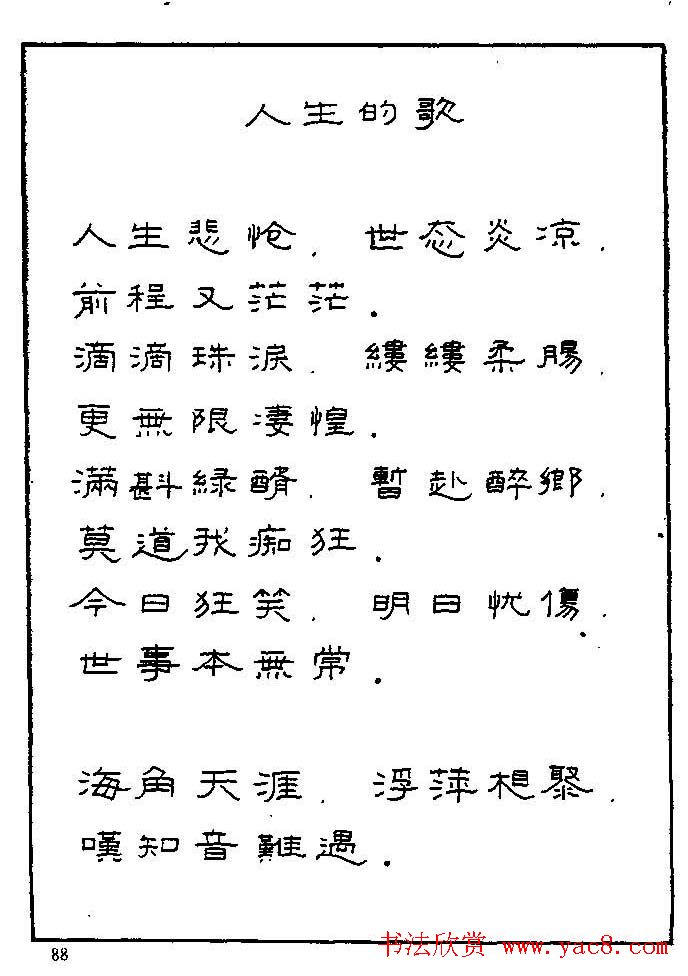 人生的歌
人生悲怆，世态炎凉，
前程又茫茫．
滴滴珠淚，縷縷柔腸，
更無限淒惶．
滿斟緑醑，暫赴醉鄉，
莫道我痴狂．
今日狂笑，明日忧傷，
世事本無常．
海角天涯，浮萍相聚，
嘆知音難遇．
88
书法欣赏 www.yac8.com